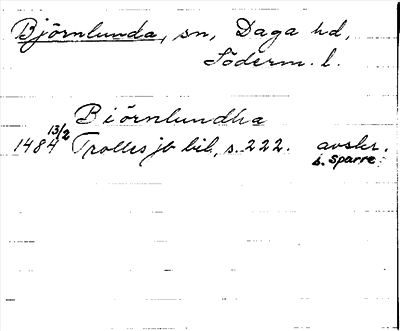 Björnlunda, sn, Daga hd,
Söderm. l.
Biörnlundha
1484 13/2 Trolles jb bil, s. 222. avskr.
i. Sparre.